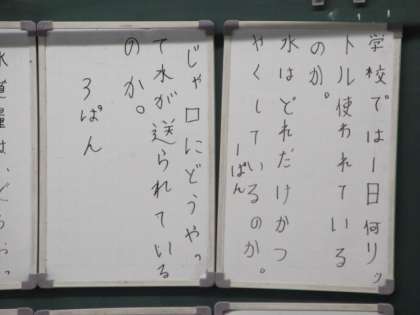 学校では一日何リッ
トル使われている
のか。
水はどれだけかつ
やくしているのか。
一ぱん
じゃ口にどうやっ
て水が送られている
のか。
3ぱん